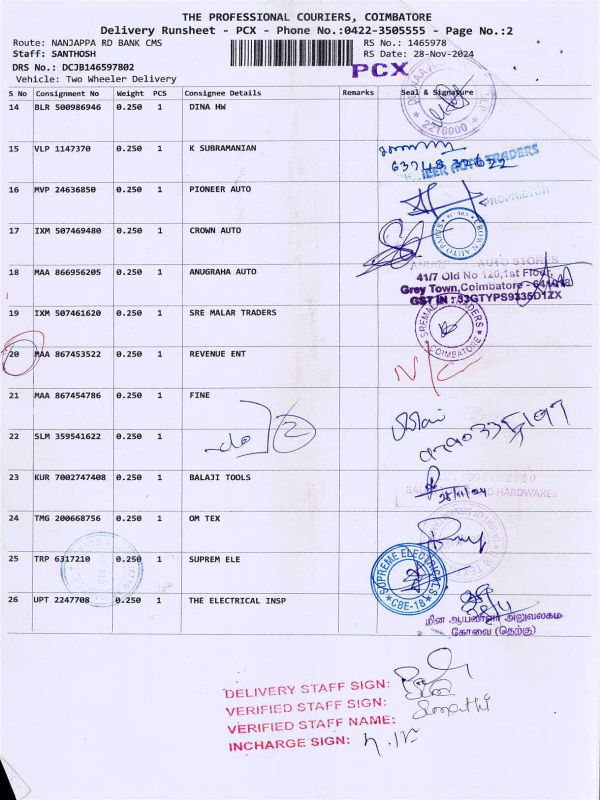 THE PROFESSIONAL COURIERS, COIMBATORE
Delivery Runsheet - PCX - Phone No.:0422-3505555 - Page No.:2
Route: NANJAPPA RD BANK CMS RS No.: 1465978
Staff: SANTHOSH RS Date: 28-Nov-2024
DRS No.: DCJB146597802 PCX
Vehicle: Two Wheeler Delivery
S No Consignment No Weight PCS Consignee Details Remarks Seal & Signature
14 BLR 500986946 0.250 1 DINA HW
2216000
15 VLP 1147370 0.250 1 K SUBRAMANIAN
TRADERS
16 MVP 24636850 0.250 1 PIONEER AUTO
PROPRIETOR
17 IXM 507469480 0.250 1 CROWN AUTO CROWN AUTO PARTS
18 MAA 866956205 0.250 1 ANUGRAHA AUTO ANUGRAHA AUTO STORES
41/7 Old No 120,1st Floor,
Grey Town,Coimbatore - 641018
GST IN : 33GTYPS9335D1ZX
19 IXM 507461620 0.250 1 SRE MALAR TRADERS SREMALAR TRADERS COIMBATORE
20 MAA 867453522 0.250 1 REVENUE ENT N/C
21 MAA 867454786 0.250 1 FINE
22 SLM 359541622 0.250 1 do 2
23 KUR 7002747408 0.250 1 BALAJI TOOLS
HARDWARES
28/11/24
24 TMG 200668756 0.250 1 OM TEX
25 TRP 6317210 0.250 1 SUPREM ELE SUPREME ELECTRICALS CBE-18
26 UPT 2247708 0.250 1 THE ELECTRICAL INSP 28/11
மின் ஆய்வாளர் அலுவலகம்
கோவை (தெற்கு)
DELIVERY STAFF SIGN:
VERIFIED STAFF SIGN:
VERIFIED STAFF NAME: Sumathi
INCHARGE SIGN: